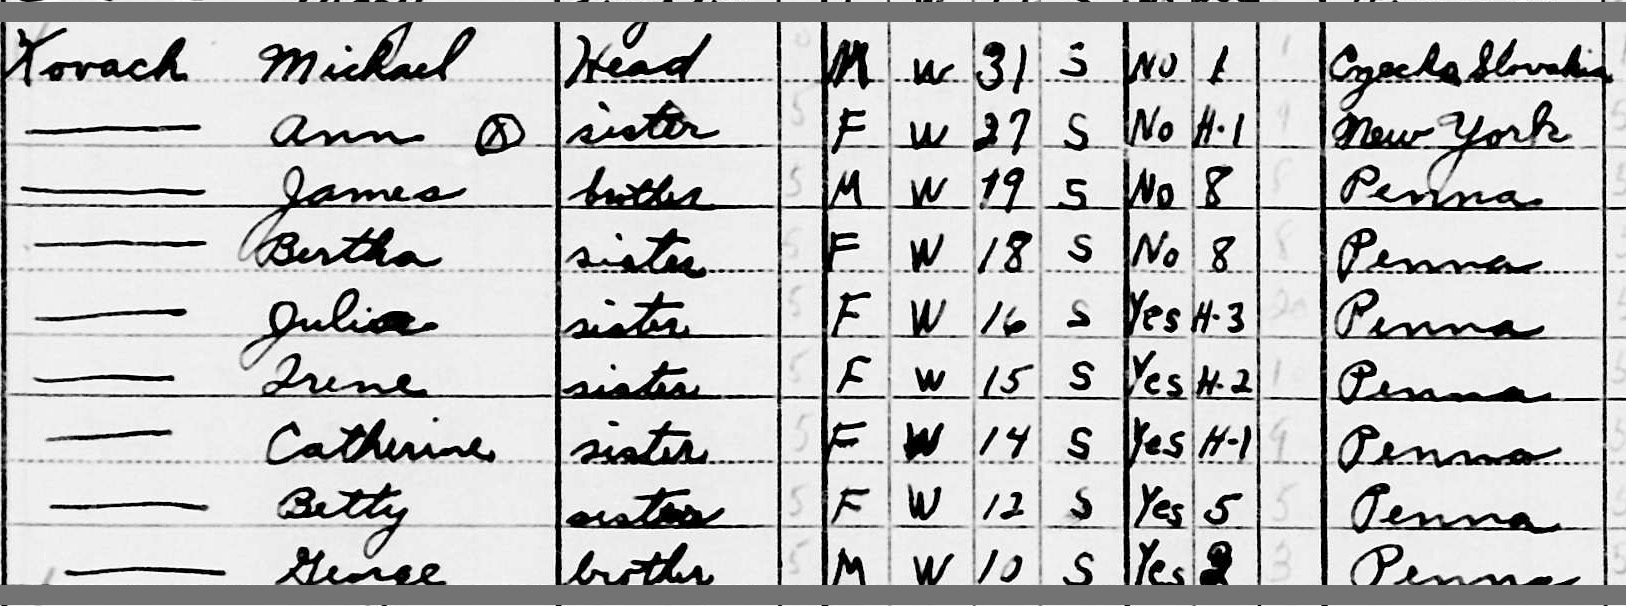 Kovach Michael Head M W 31 S No 1 Czecho Slovakia
—— Ann ⓧ sister F W 27 S No H-1 New York
—— James brother M W 19 S No 8 Penna
—— Bertha sister F W 18 S No 8 Penna
—— Julia sister F W 16 S Yes H-3 Penna
—— Irene sister F W 15 S Yes H-2 Penna
—— Catherine sister F W 14 S Yes H-1 Penna
—— Betty sister F W 12 S Yes 5 Penna
—— George brother M W 10 S Yes Penna